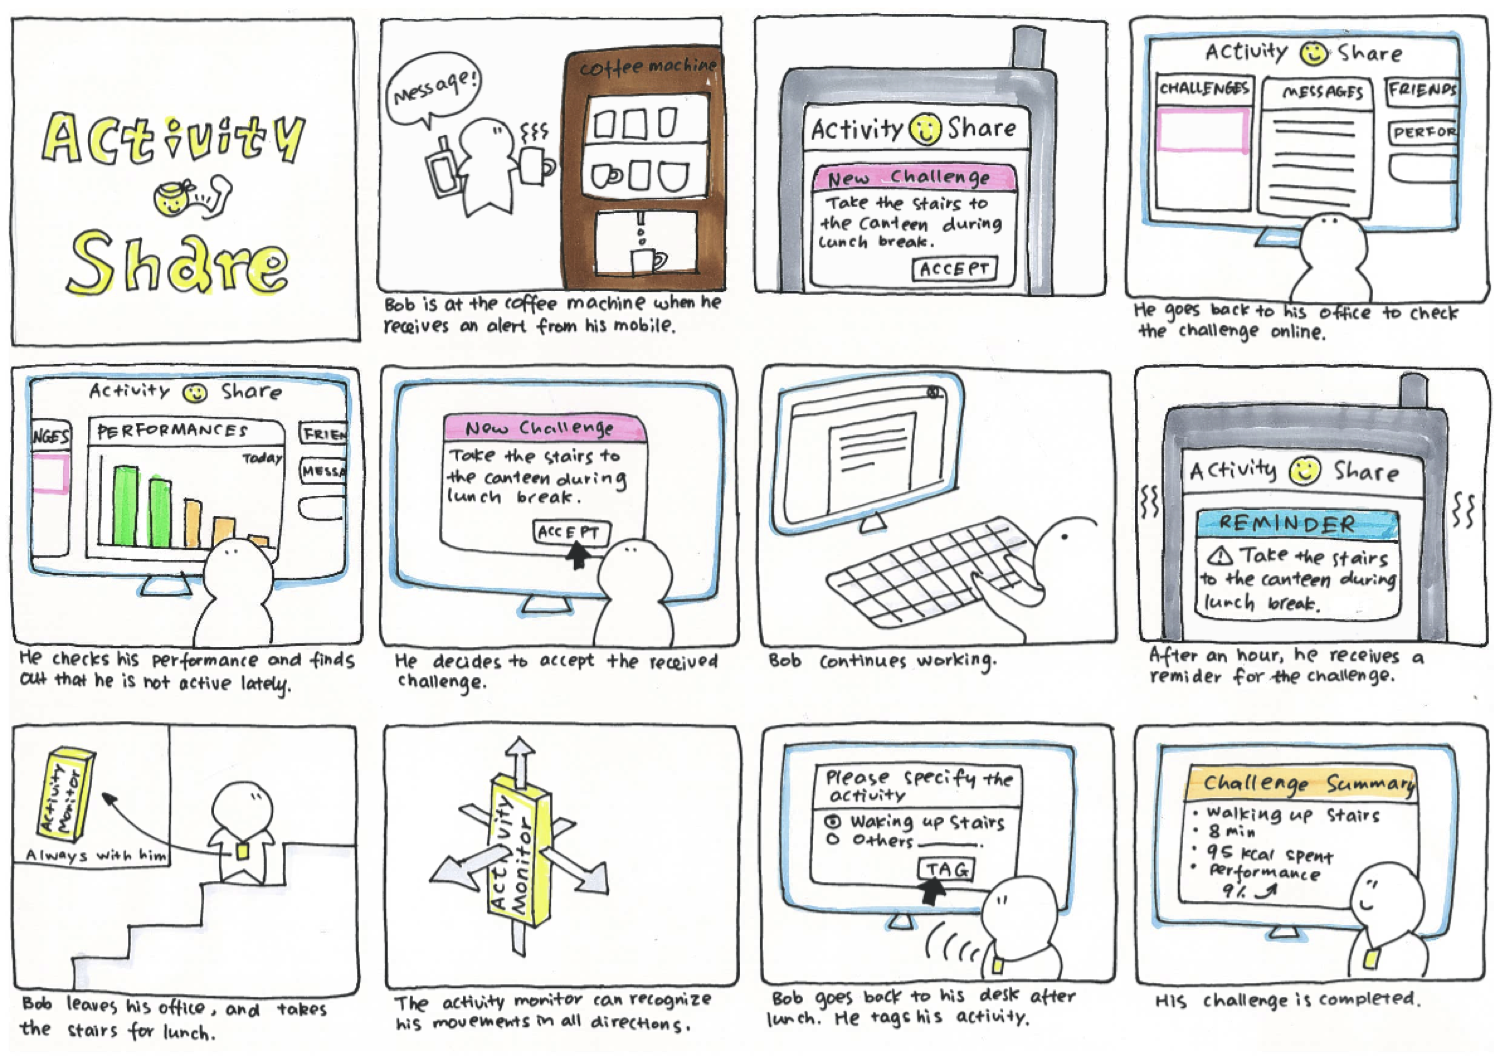 Activity
Share
Message!
coffee machine
Bob is at the coffee machine when he
receives an alert from his mobile.
Activity Share
New Challenge
Take the stairs to
the canteen during
lunch break.
ACCEPT
Activity Share
CHALLENGES
MESSAGES
FRIENDS
PERFOR
He goes back to his office to check
the challenge online.
Activity Share
NGES
PERFORMANCES
Today
FRIEN
MESSA
He checks his performance and finds
out that he is not active lately.
New Challenge
Take the stairs to
the canteen during
lunch break.
ACCEPT
He decides to accept the received
challenge.
Bob continues working.
Activity Share
REMINDER
Take the stairs
to the canteen during
lunch break.
After an hour, he receives a
remider for the challenge.
Activity
Monitor
Always with him
Bob leaves his office, and takes
the stairs for lunch.
Activity
Monitor
The activity monitor can recognize
his movements in all directions.
Please specify the
activity
Waking up stairs
Others ______.
TAG
Bob goes back to his desk after
lunch. He tags his activity.
Challenge Summary
• Walking up stairs
• 8 min
• 95 kcal spent
• Performance
9%
His challenge is completed.